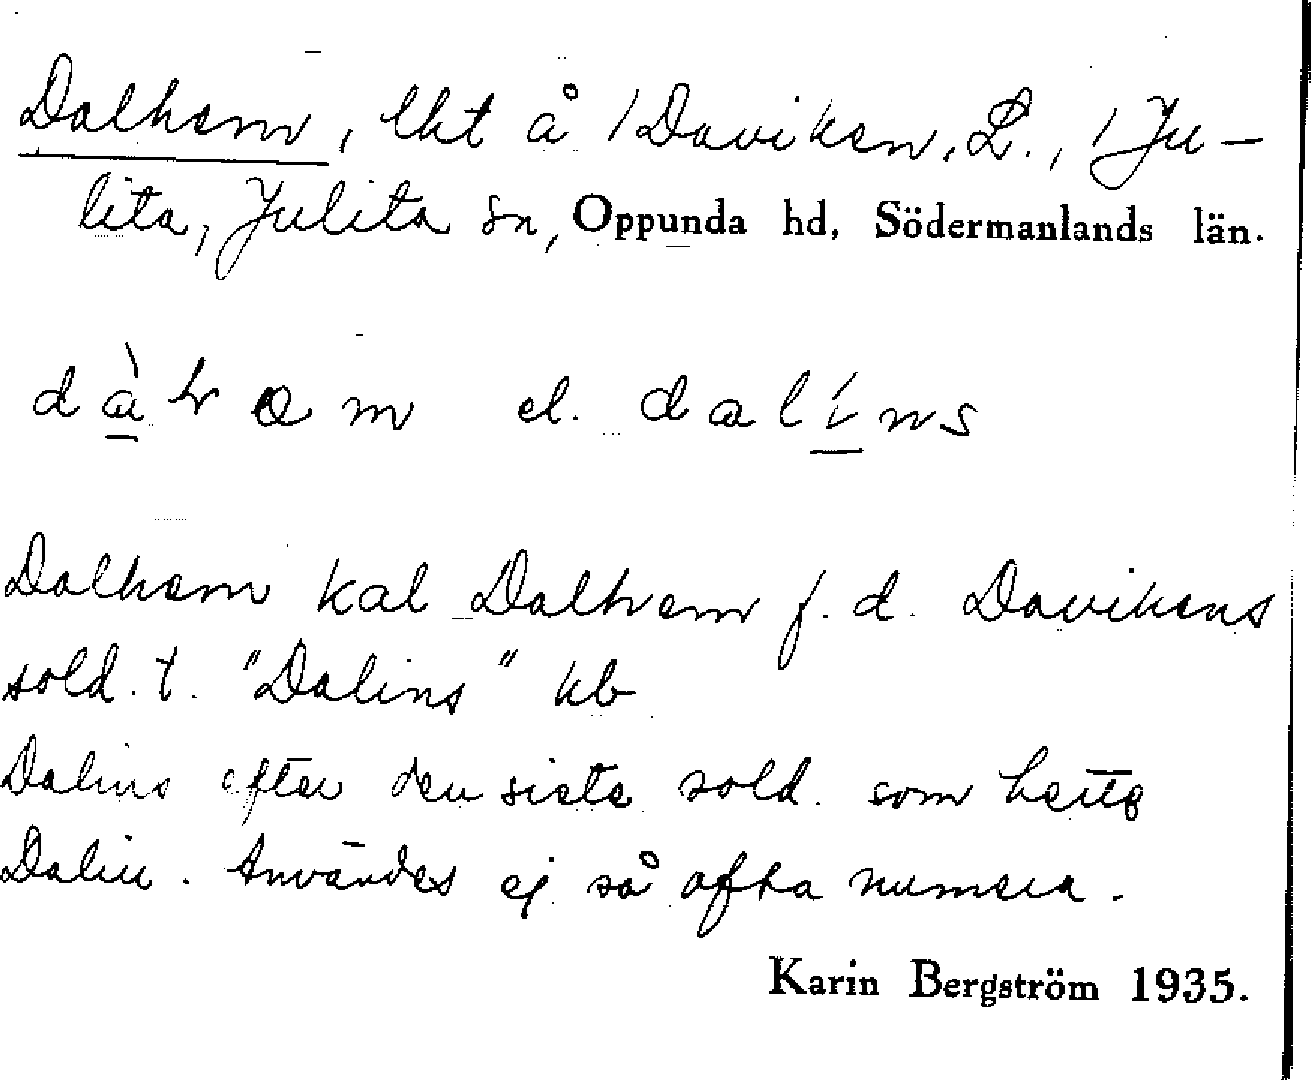 Dalhem, lht å 1 Daviken, L., 1 Ju-
lita, Julita sn, Oppunda hd, Södermanlands län.
dàhæm el. dalíns
Dalhem kal Dalhem f. d. Davikens
sold. t. "Dalins" kb
Dalins efter den siste sold. som hette
Dalin. Användes ej så ofta numera.
Karin Bergström 1935.